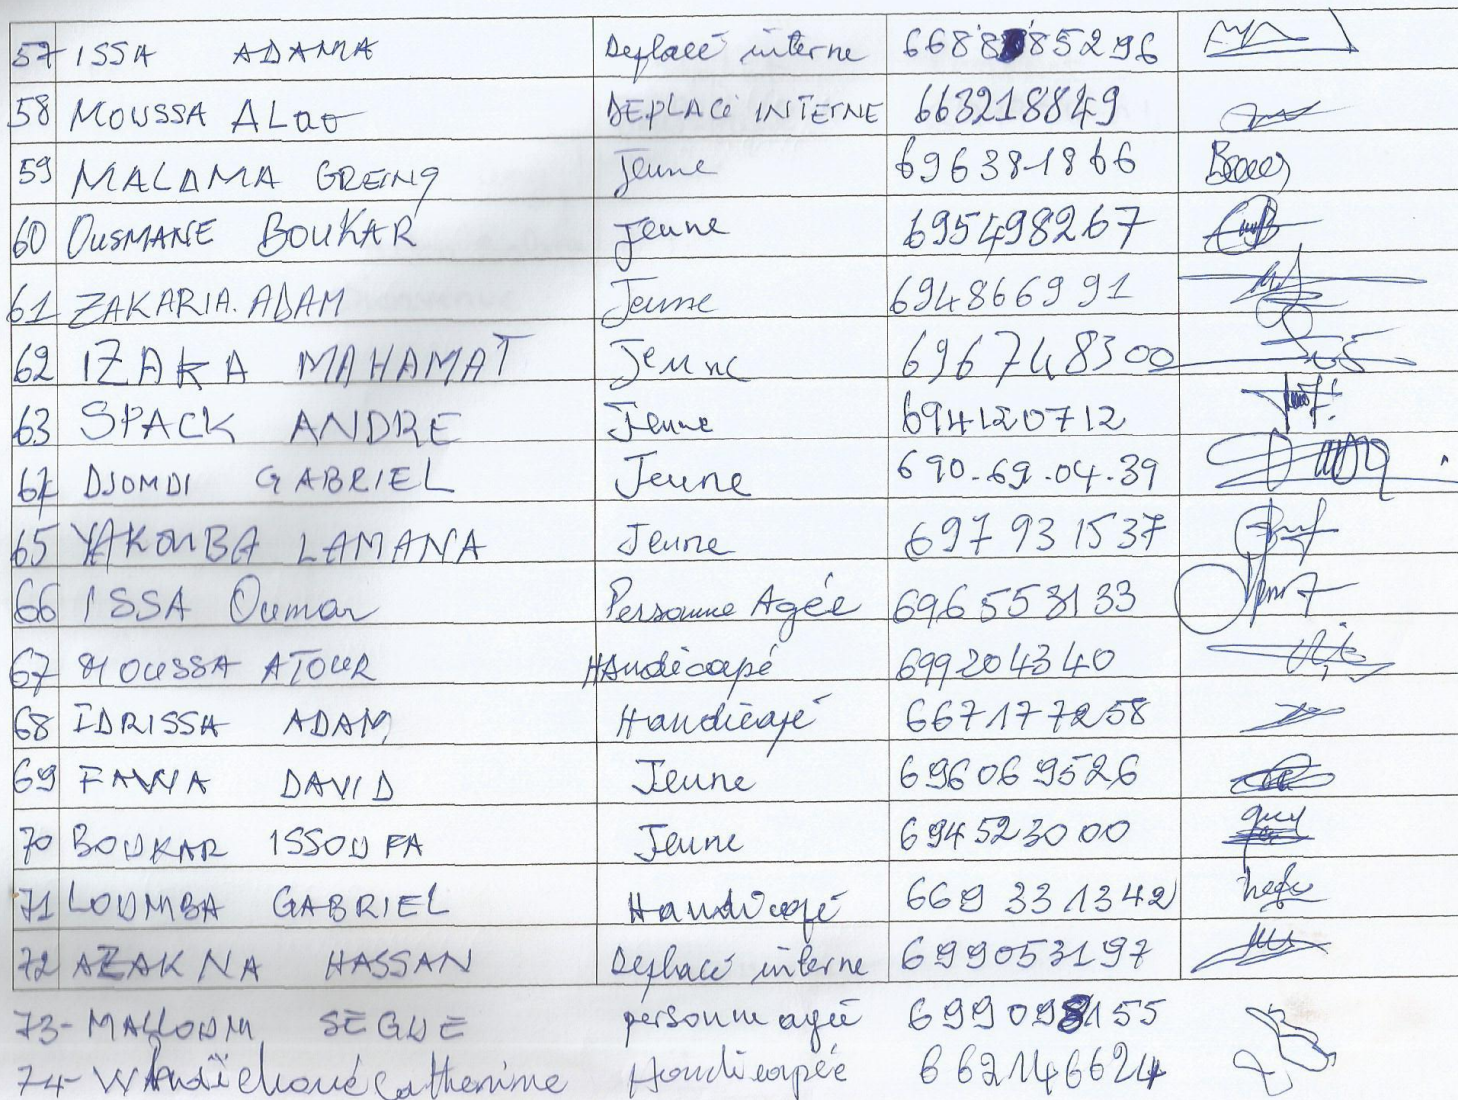 57 ISSA ADAMA Deplacé interne 668885296
58 MOUSSA ALao DEPLACé INTERNE 663218849
59 MALAMA GREING Jeune 696381866
60 OUSMANE BOUKAR Jeune 695498267
61 ZAKARIA.ADAM Jeune 694866991
62 IZAKA MAHAMAT Jeune 696748300
63 SPACK ANDRE Jeune 694120712
64 DJOMDI GABRIEL Jeune 690.69.04.39
65 YAKOUBA LAMANA Jeune 697931537
66 ISSA Oumar Personne Agée 696553133
67 MOUSSA ATOUR HAndicapé 699204340
68 IDRISSA ADAM Handicapé 667177258
69 FAWA DAVID Jeune 696069526
70 BOUKAR ISSOUFA Jeune 694523000
71 LOUMBA GABRIEL Handicapé 669331342
72 AZAKNA HASSAN Deplacé interne 699053197
73- MALLOUM SEGUE personne agée 699098155
74- Catherine Handicapée 662146624